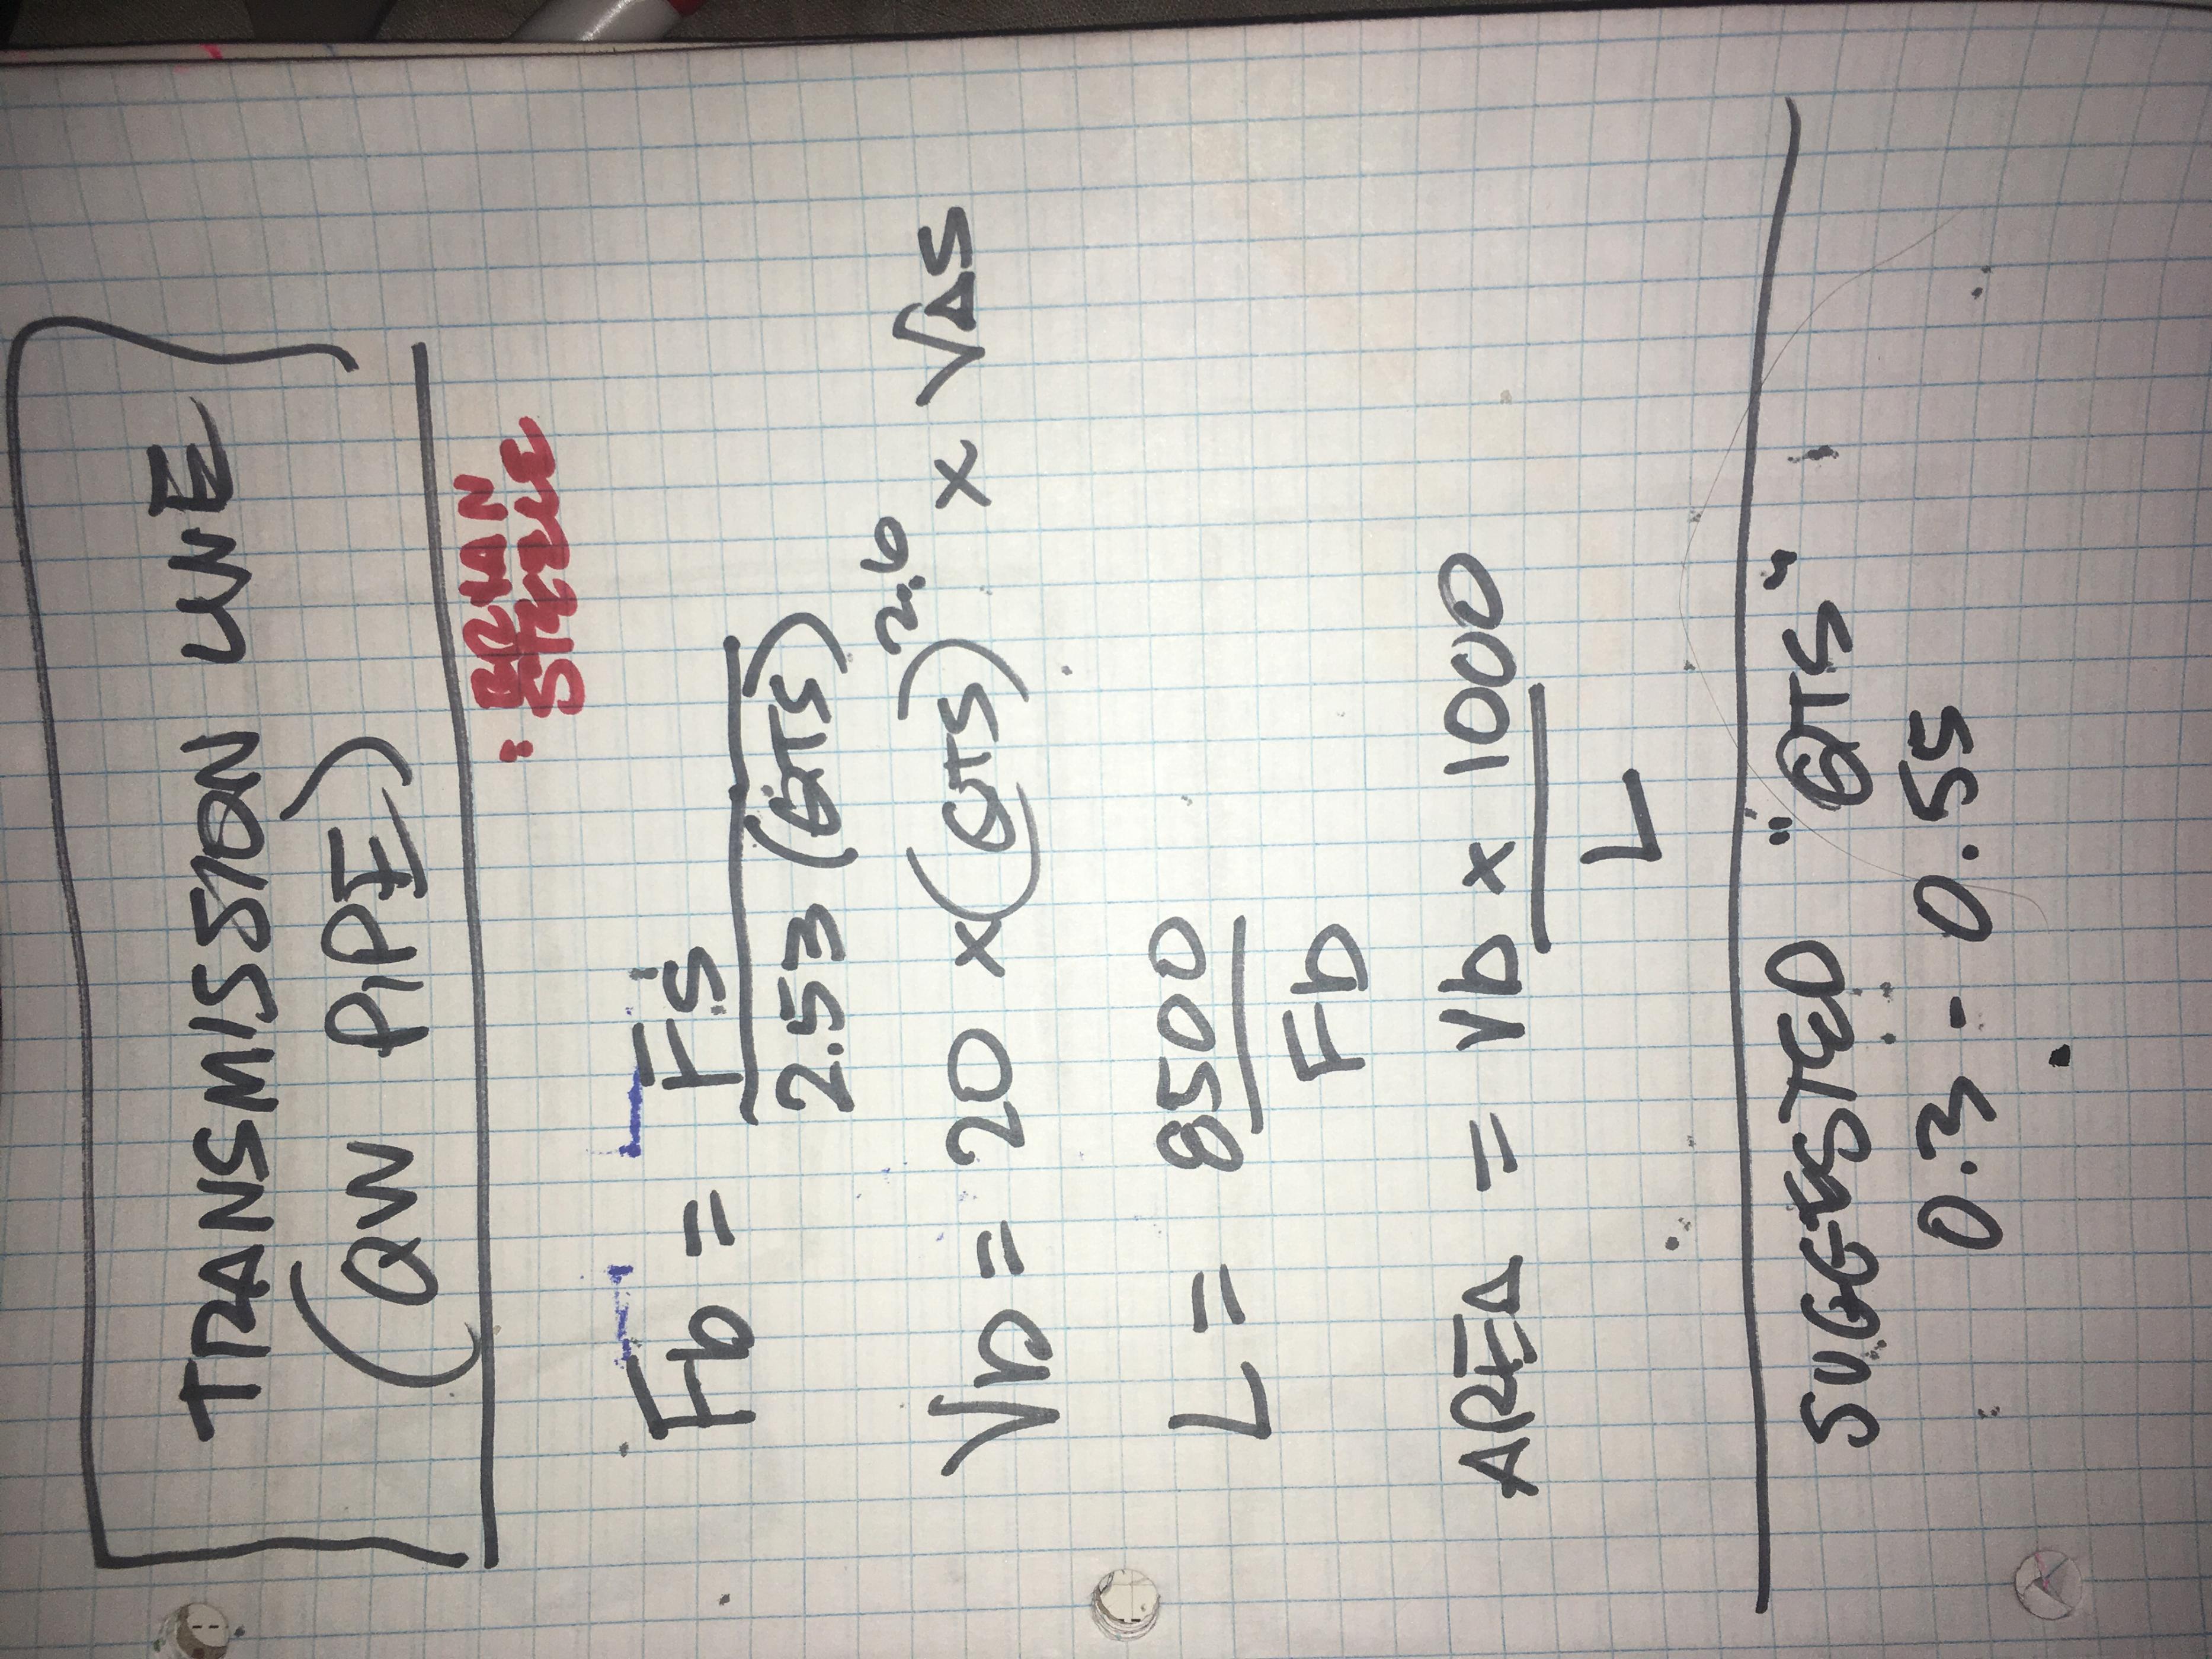 TRANSMISSION LINE
(QW PIPE)
: BRIAN
STEELE
Fb = Fs
2.53 (QTS)
Vb = 20 x (QTS)^2.6 x VAS
L = 8500
Fb
AREA = Vb x 1000
L
SUGGESTED "QTS"
0.3 - 0.55